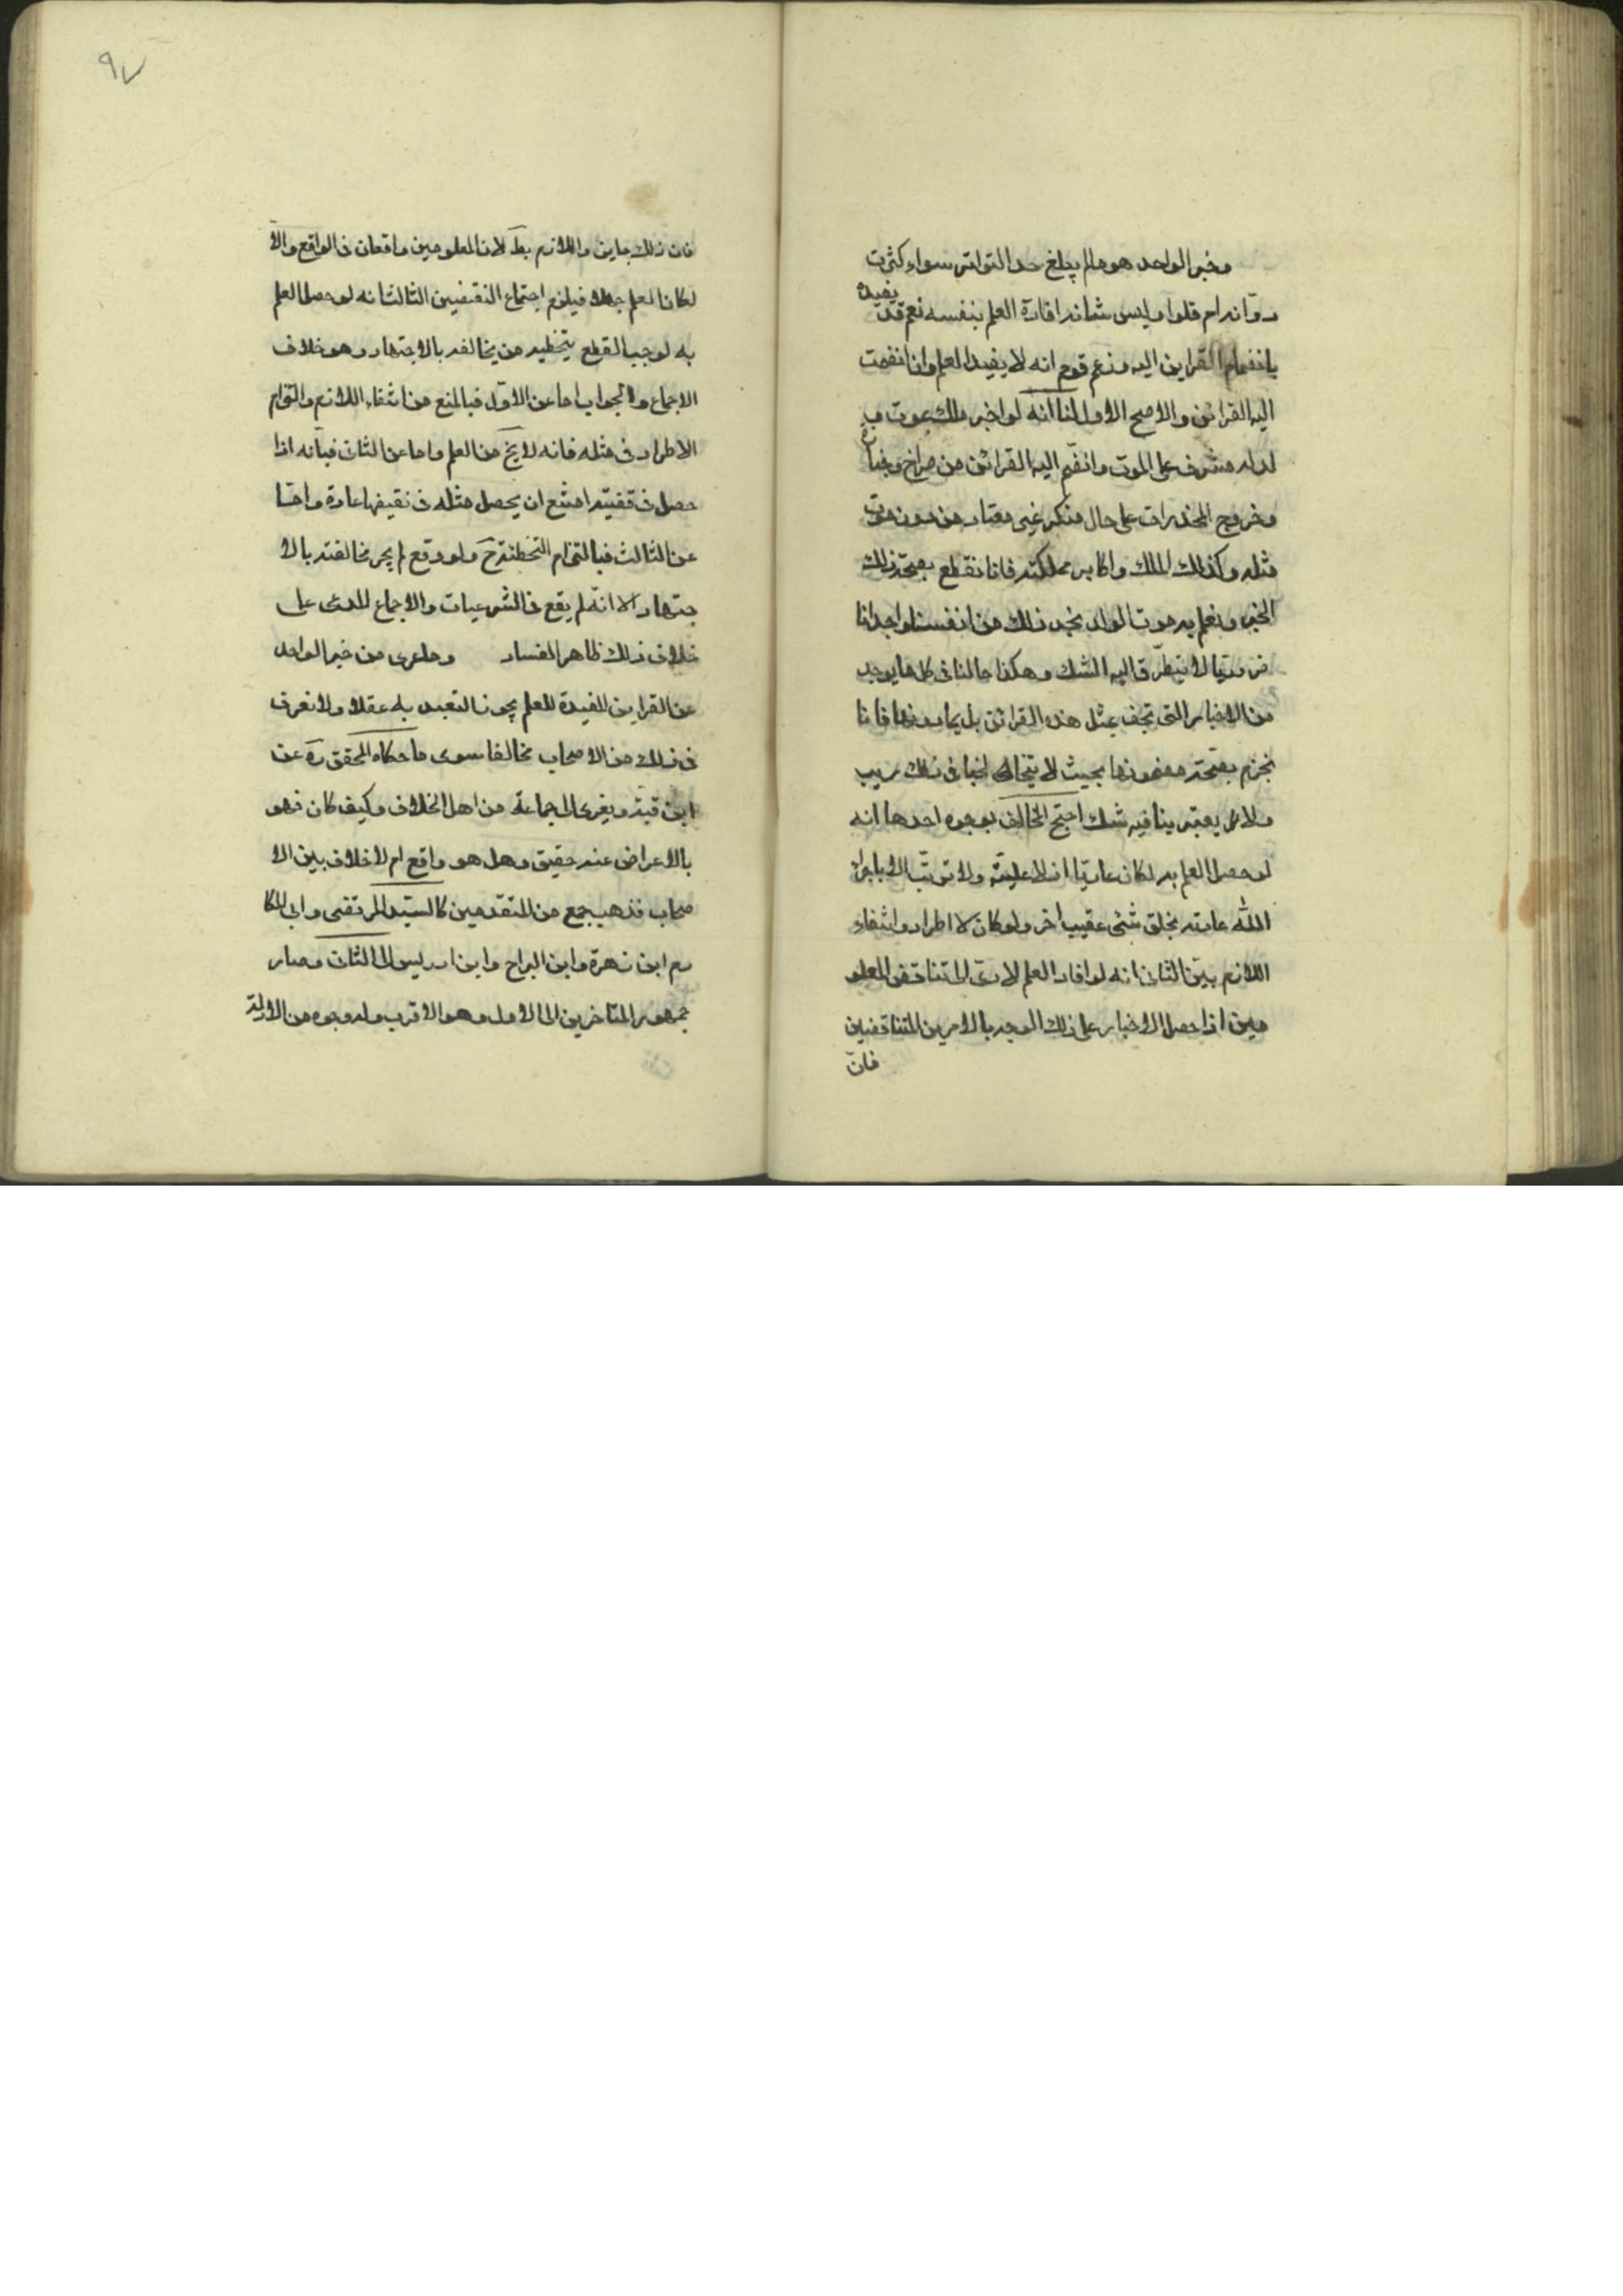 وخبر الواحد هو ما لم يبلغ حد التواتر سواء كثرت
رواته ام قلوا وليس شانه افادة العلم بنفسه نعم قد يفيده
بانضمام القراين اليه وزعم قوم انه لا يفيد العلم وان انضمت
اليه القرائن والاصح الاول لنا انه لو اخبر ملك بموت
لد له مشرف على الموت وانضم اليه القرائن من صراخ وجنازة
وخروج المخدرات على حال منكر غير معتاد من دون موت
مثله وكذلك الملك واكابر مملكته فانا نقطع بصحة ذلك
الخبر ونعلم به موت الولد نجد ذلك من انفسنا وجدانا
ضروريا لا يتطرق اليه الشك وهكذا حالنا في كل ما يوجد
من الاخبار التي تحف بمثل هذه القرائن بل بما دونها فانا
نجزم بصحة مضمونها بحيث لا يتخالجنا في ذلك ريب
ولا يعترينا فيه شك احتج المخالف بوجوه احدها انه
لو حصل العلم به لكان عاديا اذ لا علية ولا ترتب الا باجراء
الله عادته بخلق شئ عقيب اخر ولو كان لاطرد وانتفاء
اللازم بين الثاني انه لو افاد العلم لادى الى تناقض المعلو
مين اذا حصل الاخبار على ذلك الوجه بالامرين المتناقضين
فان
٩٧
فان ذلك جايز واللازم بط لان المعلومين واقعان في الواقع والا
لكان العلم جهلا فيلزم اجتماع النقيضين الثالث انه لو حصل العلم
به لوجب القطع بتخطيه من يخالفه بالاجتهاد وهو خلاف
الاجماع والجواب اما عن الاول فبالمنع من انتفاء اللازم والتزام
الاطراد في مثله فانه لا يخ من العلم واما عن الثاني فبانه اذا
حصل في قضية امتنع ان يحصل مثله في نقيضها عادة واما
عن الثالث فبالتزام التخطئة ح ولو وقع لم يجز مخالفته بالا
جتهاد الا انه لم يقع في الشرعيات والاجماع المدعى على
خلاف ذلك ظاهر الفساد وما عرى من خبر الواحد
عن القراين المفيدة للعلم يجوز التعبد به عقلا ولا نعرف
في ذلك من الاصحاب مخالفا سوى ما حكاه المحقق ره عن
ابن قبة ويعزى الى جماعة من اهل الخلاف وكيف كان فهو
بالاعراض عنه حقيق وهل هو واقع ام لا خلاف بين الا
صحاب فذهب جمع من المتقدمين كالسيد المرتضى وابي المكا
رم ابن زهرة وابن البراج وابن ادريس الى الثاني وصار
جمهور المتاخرين الى الاول وهو الاقرب وله وجوه من الادلة